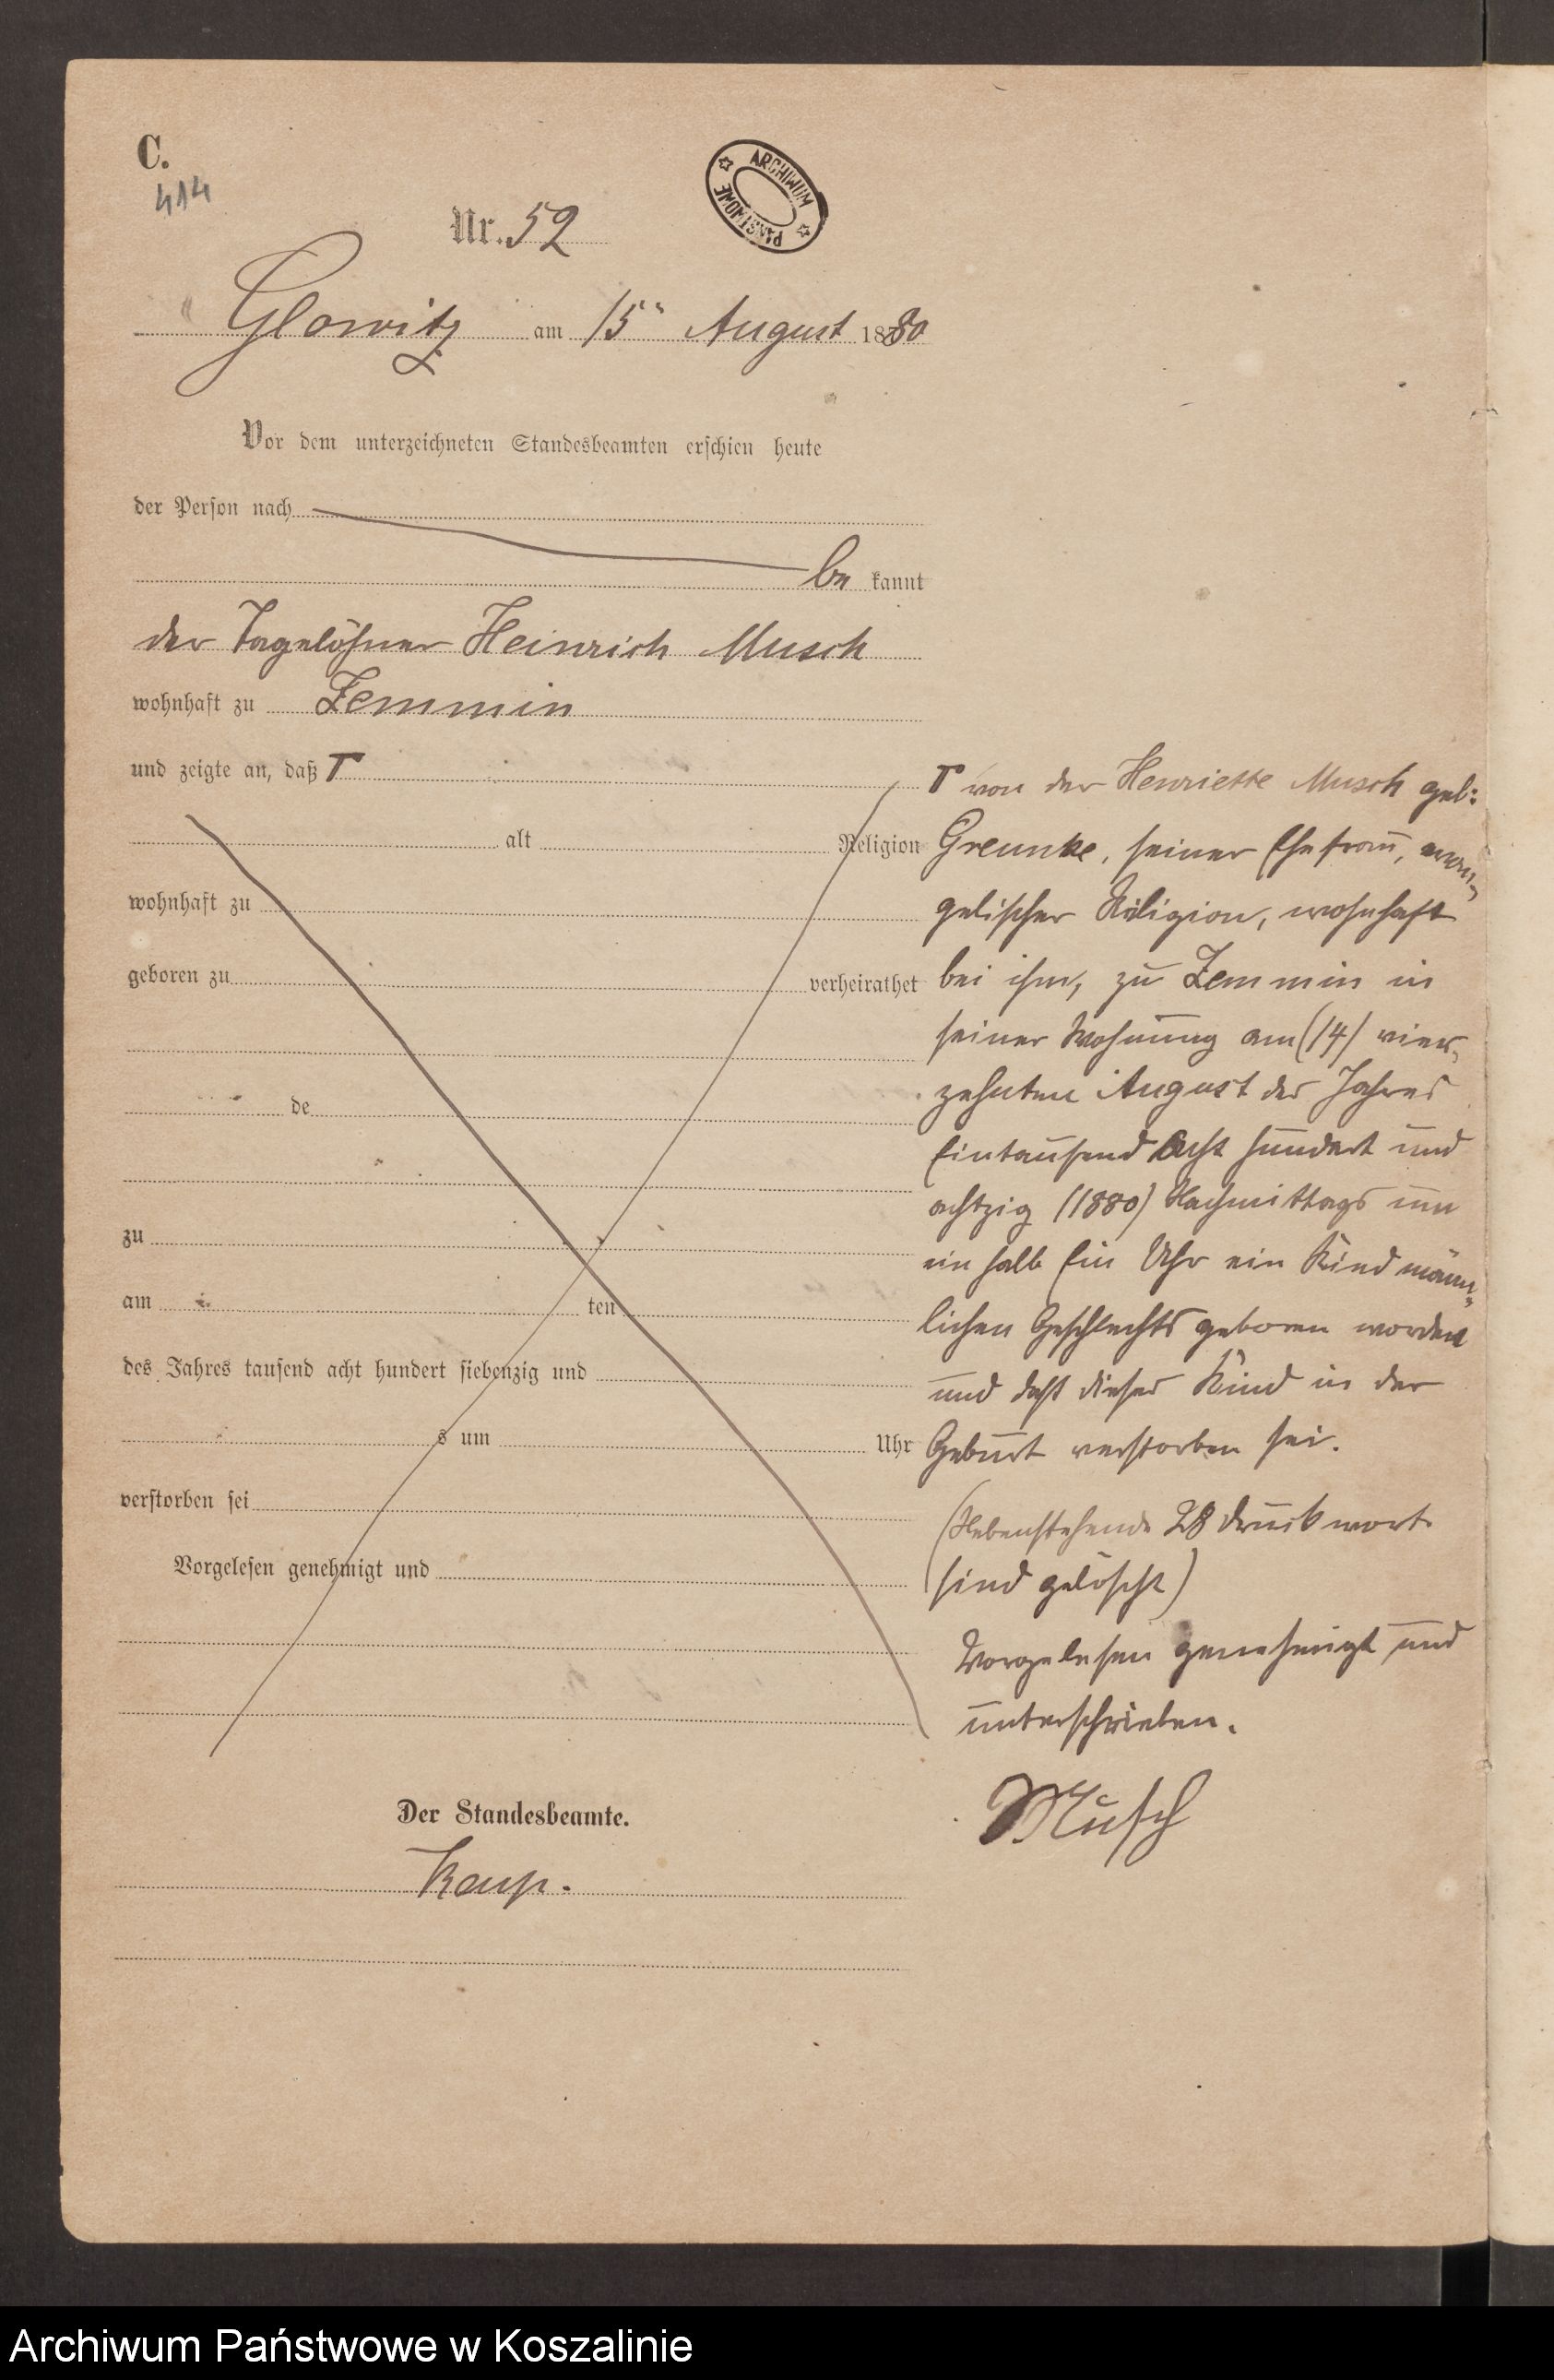 C.
414
Nr. 52
ARCHIWUM PAŃSTWOWE
Glowitz am 15ⁿ August 1880
Vor dem unterzeichneten Standesbeamten erschien heute
der Person nach
be kannt
der Tagelöhner Heinrich Musch
wohnhaft zu Zemmin
und zeigte an, daß Γ
alt Religion
wohnhaft zu
geboren zu verheirathet
de
zu
am ten
des Jahres tausend acht hundert siebenzig und
s um Uhr
verstorben sei
Vorgelesen genehmigt und
Γ von der Henriette Musch geb:
Greunke, seiner Ehefrau, evan-
gelischer Religion, wohnhaft
bei ihm, zu Zemmin in
seiner Wohnung am (14) vier-
zehnten August des Jahres
Eintausend Acht hundert und
achtzig (1880) Nachmittags um
ein halb Ein Uhr ein Kind männ-
lichen Geschlechts geboren worden
und daß dieses Kind in der
Geburt verstorben sei.
(Nebenstehende 28 Druckworte
sind gelöscht)
Vorgelesen genehmigt und
unterschrieben.
Musch
Der Standesbeamte.
Archiwum Państwowe w Koszalinie